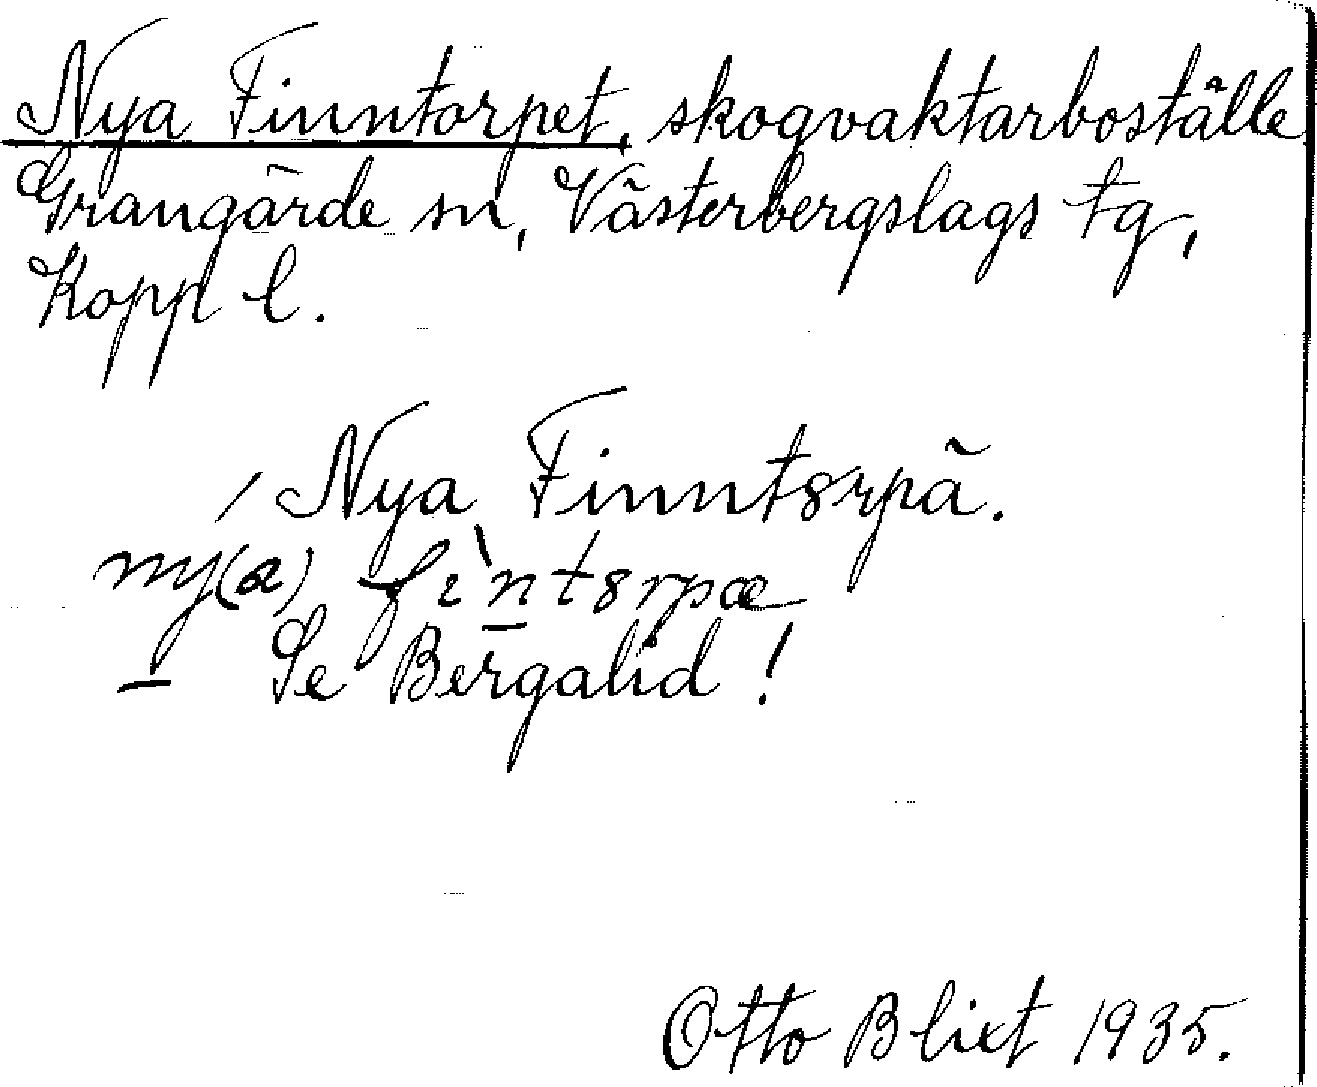 Nya Finntorpet, skogvaktarboställe
Grangärde sn, Västerbergslags tg,
Kopp l.
/ Nya Finnt8rpä.
ny(a) fìnt8rpæ
Se Bergalid!
Otto Blixt 1935.